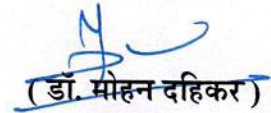 ( डॉ. मोहन दहिकर )